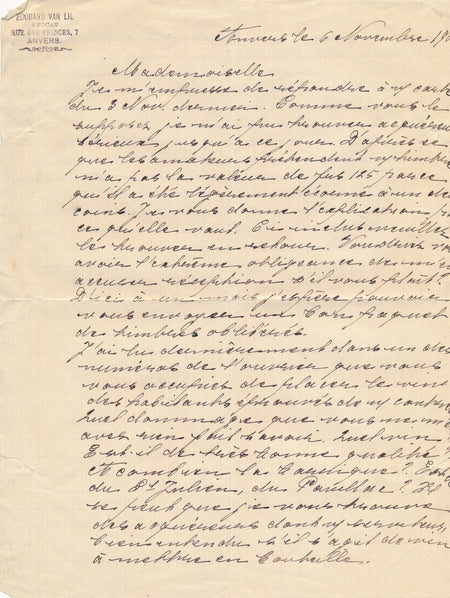 EDOUARD VAN LIL
AVOCAT
RUE DES PRINCES, 7
ANVERS.
Anvers le 6 Novembre 19
Mademoiselle
Je m'empresse de répondre à v/ carte
du 3 Nov. dernier. Comme vous le
supposez je n'ai pu trouver acquéreur
sérieux jusqu'à ce jour. D'après ce
que les amateurs prétendent v/ timbre
n'a pas la valeur de frs 125 parce
qu'il a été légèrement écorné à un des
coins. Je vous donne l'explication p
ce qu'elle vaut. Ci inclus veuillez
le trouver en retour. Voudriez v
avoir l'extrême obligeance de m'en
accuser réception s'il vous plaît?
D'ici à un mois j'espère pouvoir
vous envoyer un bon paquet
de timbres oblitérés.
J'ai lu dernièrement dans un des
numéros de que vous
vous occupiez de placer le vin
des habitants éprouvés de v/ contrée
Quel dommage que vous ne m'
avez rien fait savoir. Quel vin?
Est-il de très bonne qualité?
A combien la barrique? Est
du St Julien, du Pauillac? Il
se peut que je vous trouve
des acquéreurs dont
bien entendu s'il s'agit de vin
à mettre en bouteille.